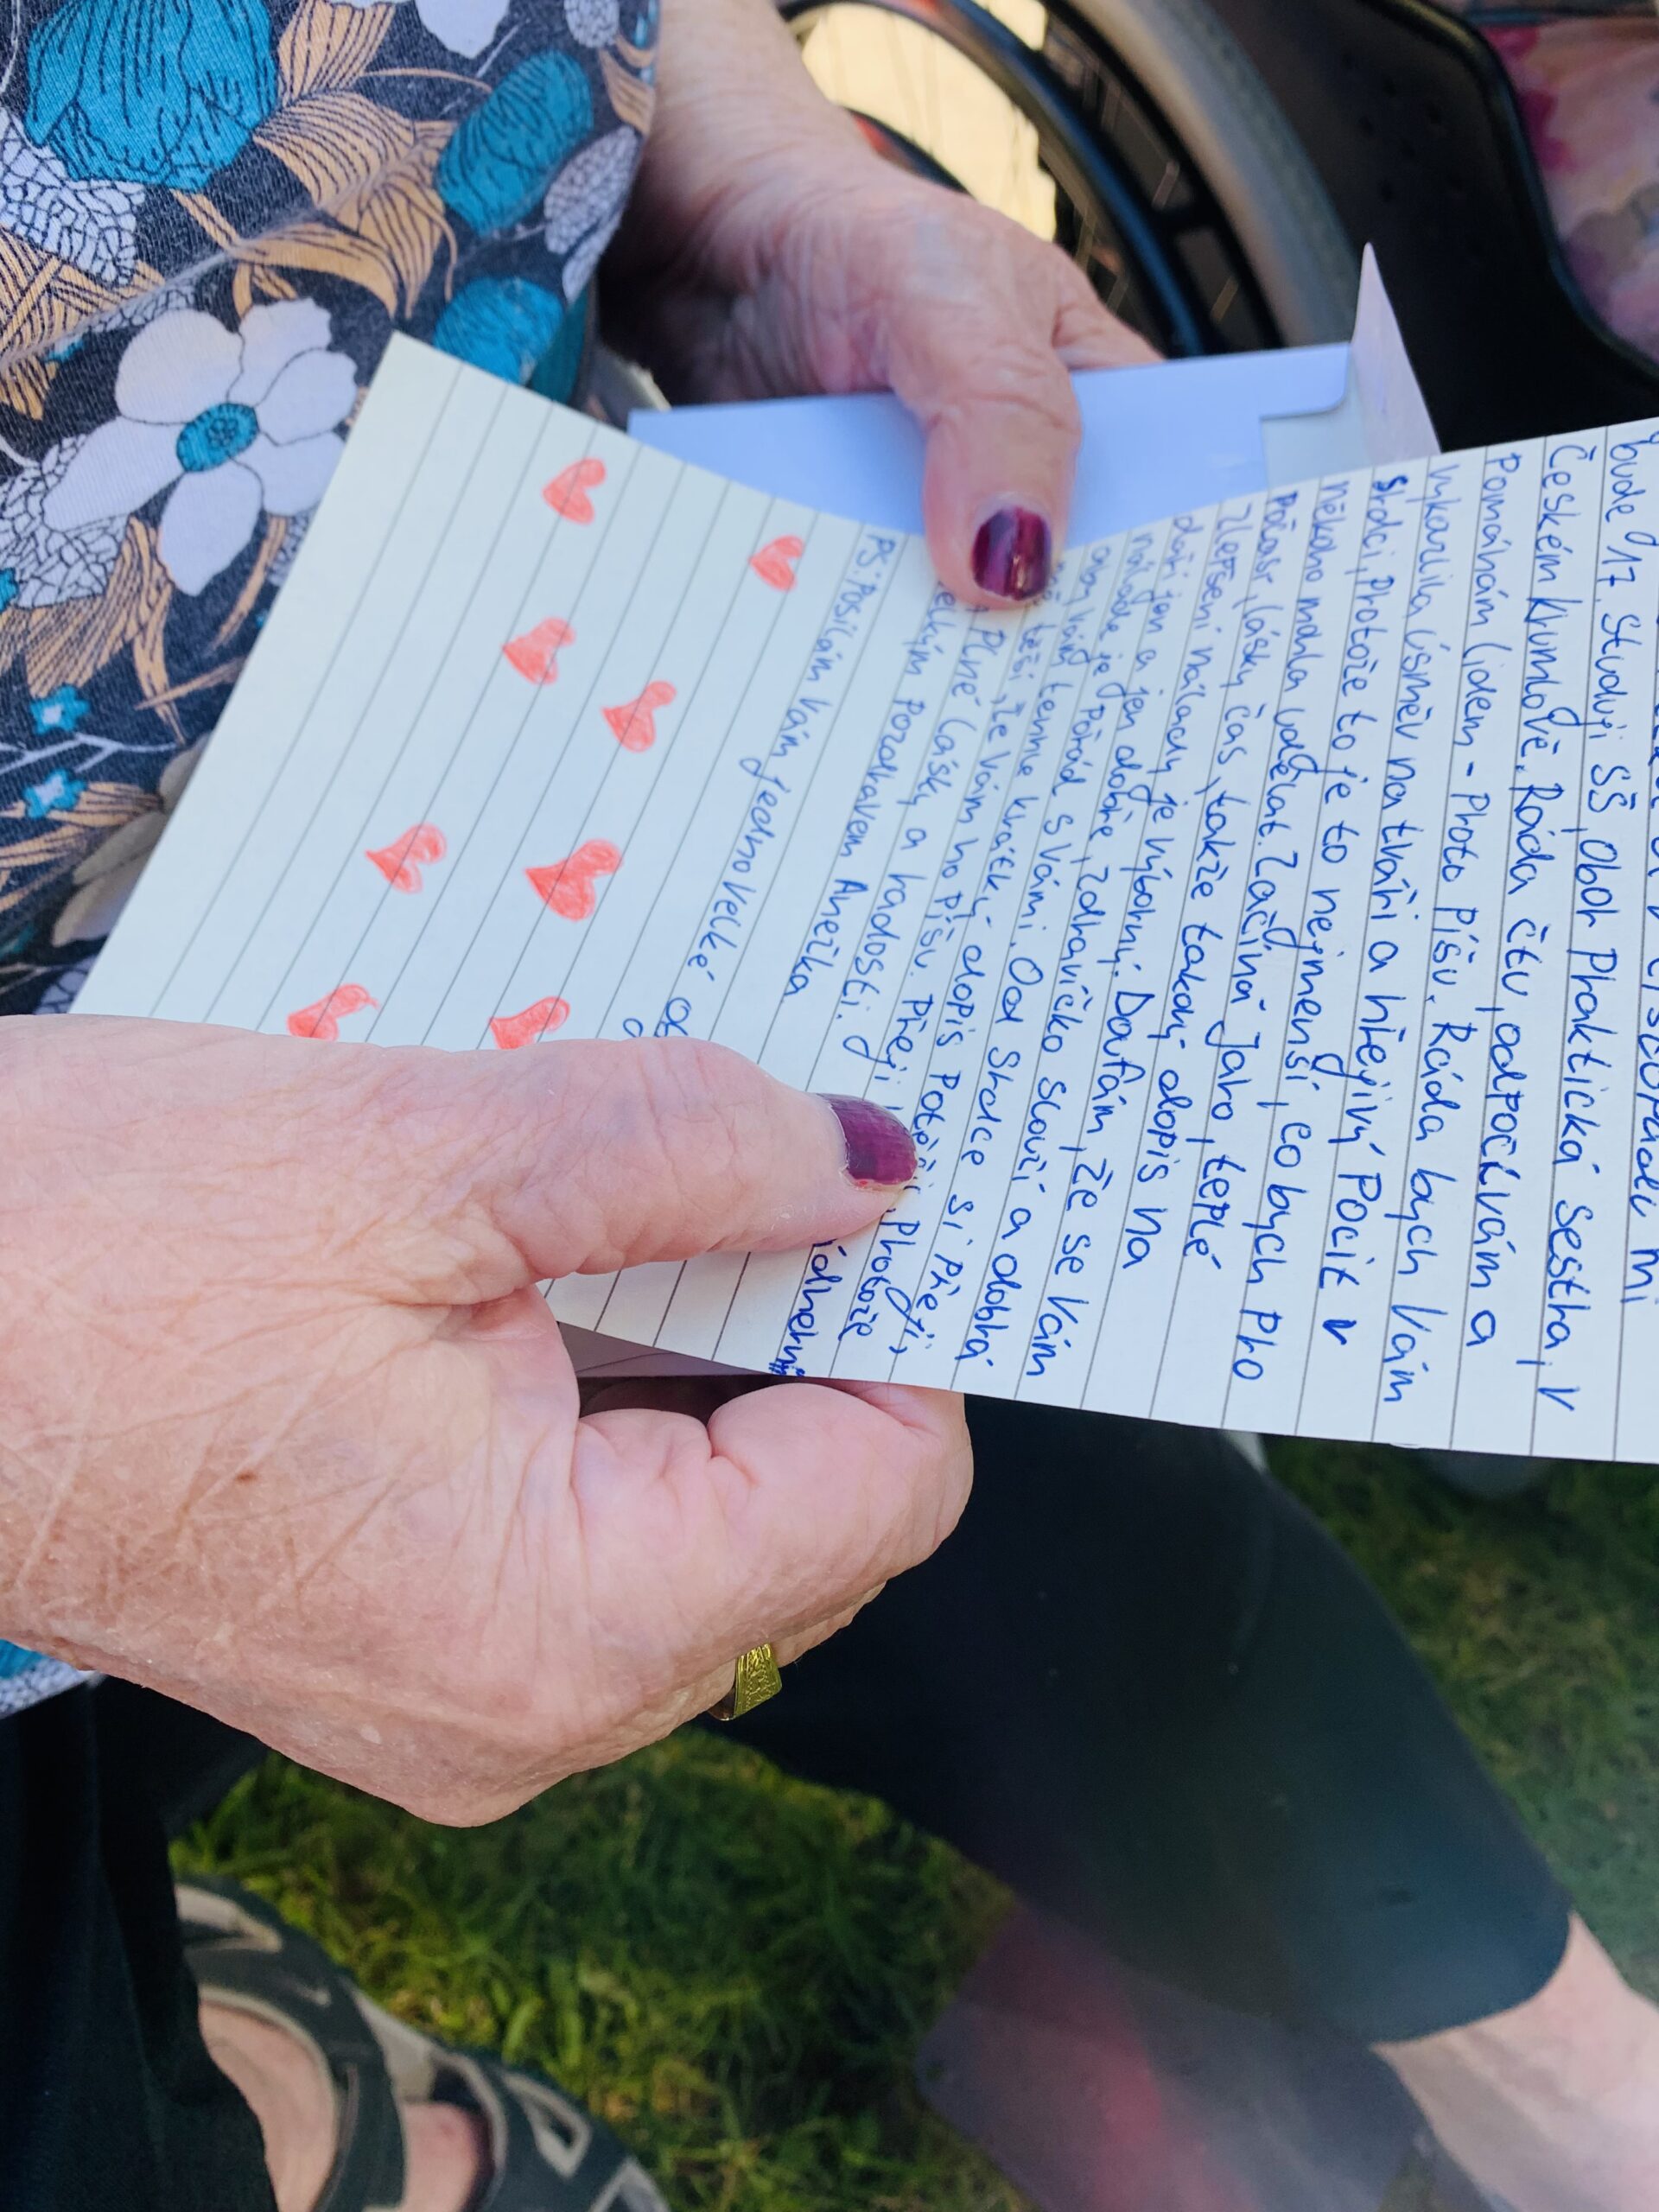 bude 17. Studuji SŠ, obor Praktická sestra, v
Českém Krumlově. Ráda čtu, odpočívám a
Pomáhám lidem - Proto píšu. Ráda bych Vám
vykouzlila úsměv na tváři a hřejivý Pocit v
Srdci, Protože to je to nejmenší, co bych Pro
někoho mohla udělat. Začíná Jaro, teplé
Počasí, lásky čas, takže takový dopis na
Zlepšení nálady je výborný. Doufám, že se Vám
daří jen a jen dobře, zdravíčko slouží a dobrá
nálada je Pořád s Vámi. Od Srdce si Přeji,
aby Vám tenhle krátký dopis Potěšil, Protože
těší, že Vám ho píšu. Přeji
Plné lásky a radosti.
Pozdravem Anežka
PS: Posílám Vám jedno velké